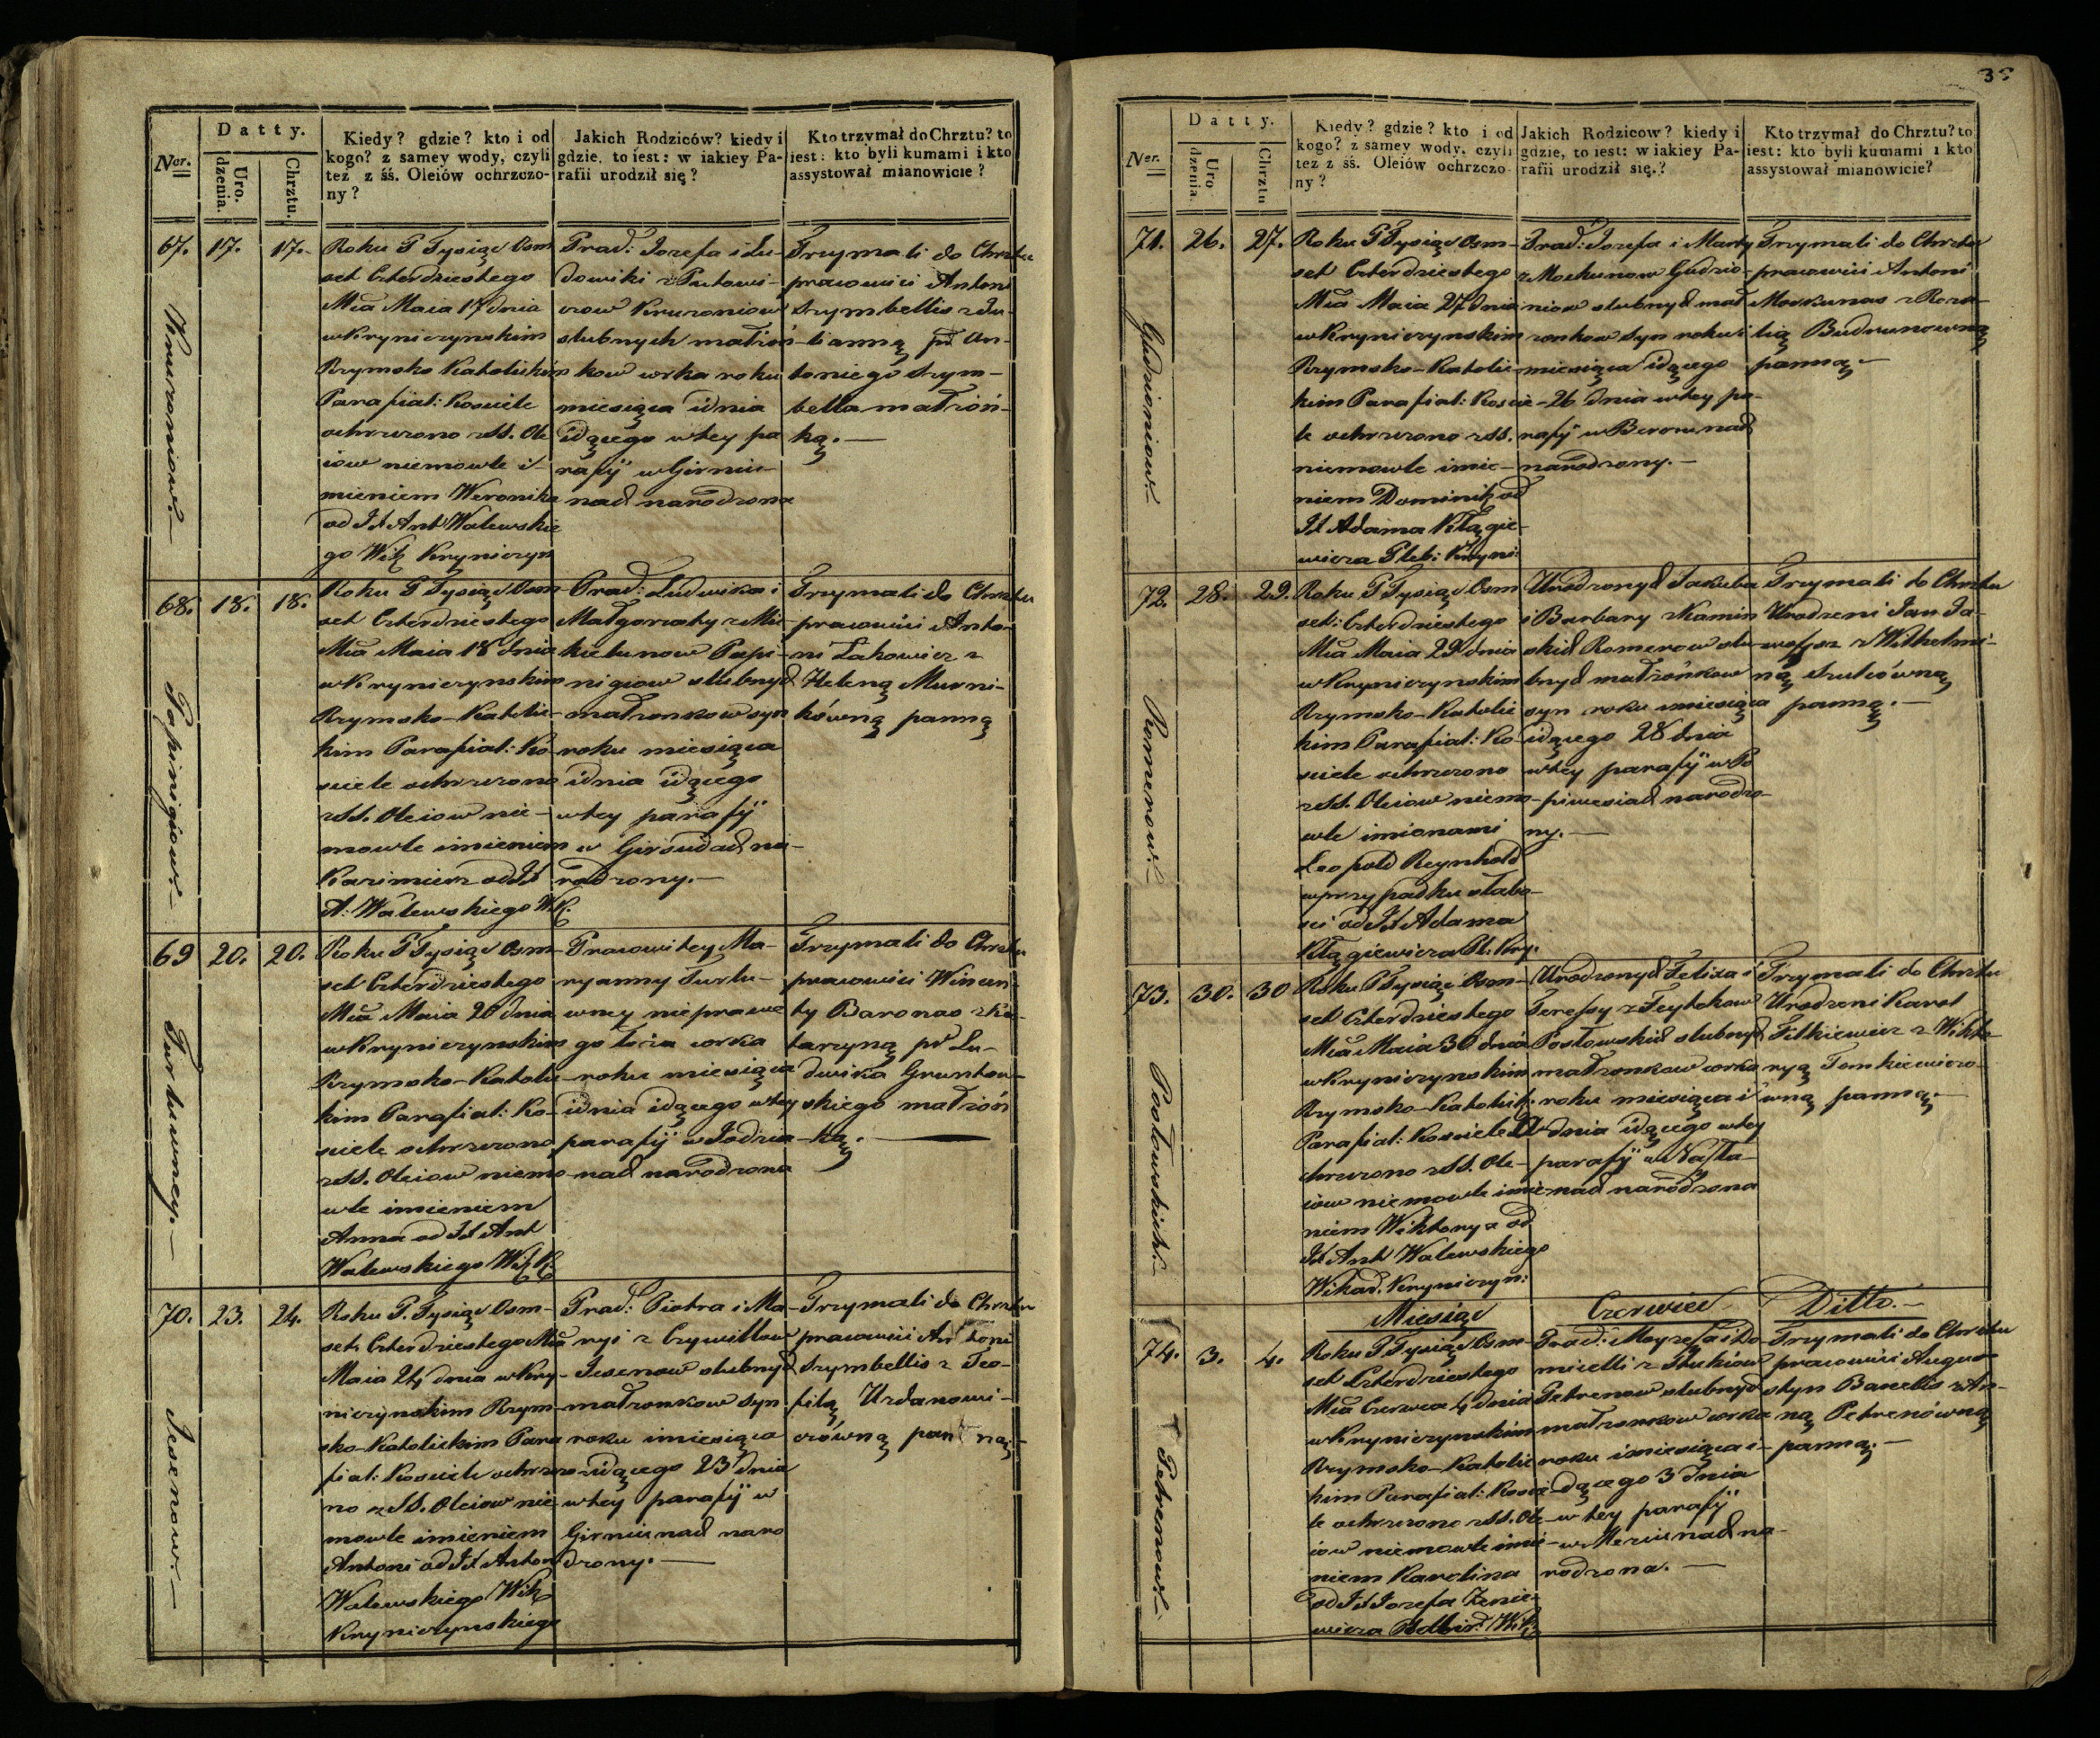 Ner.
Datty.
Uro.
dzenia.
Chrztu.
Kiedy? gdzie? kto i od
kogo? z samey wody, czyli
też z śś. Oleiów ochrzczo-
ny?
Jakich Rodziców? kiedy i
gdzie, to iest: w iakiey Pa-
rafii urodził się?
Kto trzymał do Chrztu? to
iest: kto byli kumami i kto
assystował mianowicie?
67. 17. 17.
Roku P Tysiąc Osm
set Czterdziestego
Mca Maia 17 dnia
w Krynicznynskim
Rzymsko Katolickim
Parafial: Kosciele
ochrzczono z SS. Ole
iow niemowle i-
mieniem Weronika
od JX Ant Walewskie
go Wik Kryniczyn
Prac: Jozefa i Lu-
dowiki z
slubnych małżoń-
kow corka roku
miesiąca i dnia
idącego w tey pa
rafij w Girniu-
nach narodzona
Trzymali do Chrztu
pracowici Antoni
Szymbellis z Ju-
lianną po An-
toniego Szym-
bella małżoń-
ką.-
68. 18. 18.
Papinigiow.-
Roku P Tysiąc Osm
set Czterdziestego
Mca Maia 18 dnia
w Krynicznynskim
Rzymsko-Katolic-
kim Parafial: Ko-
sciele ochrzczono
z SS. Oleiow nie-
mowle imieniem
Kazimierz od JX
A: Walewskiego W.K.
Prac: Ludwika i
Małgorzaty z Mi-
kielunow Papi-
nigiow slubnych
małżonkow syn
roku miesiąca
i dnia idącego
w tey parafij
w Girsudach na-
rodzony.-
Trzymali do Chrztu
pracowici Anto-
ni Lahowicz z
Heleną Murni-
kówną panną
69 20. 20.
Turluwney.-
Roku P Tysiąc Osm-
set Czterdziestego
Mca Maia 20 dnia
w Krynicznynskim
Rzymsko-Katolic-
kim Parafial: Ko-
sciele ochrzczono
z SS. Oleiow niemo-
wle imieniem
Anna od JX Ant
Walewskiego Wik K.
Pracowitey Ma-
ryanny Turlu-
wney nieprawe
go łoża corka
roku miesiąca
i dnia idącego w tey
parafij w Jodzia-
nach narodzona
Trzymali do Chrztu
pracowici Wincen
ty Baronas z Ka-
tarzyną po Lu-
dwika Gruntow-
skiego małżoń
ką.
70. 23. 24.
Jesenow.-
Roku P. Tysiąc Osm-
set Czterdziestego Mca
Maia 24 dnia w Kry-
nicznynskim Rzym-
sko-Katolickim Para
fial: Kosciele ochrzczo-
no z SS. Oleiow nie-
mowle imieniem
Antoni od JX Anton
Walewskiego Wik
Krynicznynskiego
Prac: Piotra i Ma-
ryi z Czywillow
Jesenow slubnych
małżonkow syn
roku i miesiąca
idącego 23 dnia
w tey parafij w
Girniunach naro
dzony.-
Trzymali do Chrztu
pracowici Antoni
Szymbellis z Teo-
filą Urdanowi-
czówną panną.-
35
Ner.
Datty.
Uro
dzenia.
Chrztu
Kiedy? gdzie? kto i od
kogo? z samey wody, czyli
też z śś. Oleiów ochrzczo-
ny?
Jakich Rodzicow? kiedy i
gdzie, to iest: w iakiey Pa-
rafii urodził się.?
Kto trzymał do Chrztu? to
iest: kto byli kumami i kto
assystował mianowicie?
71. 26. 27.
Gudzioniow.-
Roku P Tysiąc Osm-
set Czterdziestego
Mca Maia 27 dnia
w Krynicznynskim
Rzymsko-Katolic-
kim Parafial: Koscie-
le ochrzczono z SS.
niemowle imie-
niem Dominik od
JX Adama Kłągie-
wicza Pleb: Kryni:
Prac: Jozefa i Marty
z Mockunow Gudzio-
niow slubnych mał
zonkow syn roku i
miesiąca idącego
26 dnia w tey pa-
rafij w narodzony.-
Trzymali do Chrztu
pracowici Antoni
Mockunas z Roza-
lią Budrunowną
panną.-
72. 28. 29.
Romerow.-
Roku P Tysiąc Osm
set: Czterdziestego
Mca Maia 29 dnia
w Krynicznynskim
Rzymsko-Katolic
kim Parafial: Ko-
sciele ochrzczono
z SS. Oleiow niemo-
wle imionami
Leopold Reynhold
w przypadku słabo-
sci od JX Adama
Kłągiewicza Pl. Kry.
Urodzonych Jakuba
i Barbary z Kamin
skich Romerow slu-
bnych małżonkow
syn roku miesiąca
idącego 28 dnia
w tey parafij w Po
piwesiach narodzo-
ny.-
Trzymali do Chrztu
Urodzeni Jan Ja-
z Wilhelmi-
ną Szulcówną
panną.-
73. 30. 30
Postowskich.-
Roku P Tysiąc Osm-
set Czterdziestego
Mca Maia 30 dnia
w Krynicznynskim
Rzymsko-Katolick.
Parafial: Kosciele O-
chrzczono z SS. Ole-
iow niemowle imie-
niem Wiktorya od
JX Ant Walewskiego
Wikar. Kryniczyn:
Urodzonych Felixa i
Teressy z
Postowskich slubnych
małżonkow corka
roku miesiąca i
dnia idącego w tey
parafij w narodzona
Trzymali do Chrztu
Urodzeni Karol
z Wikto-
ryą Tomkiewiczo-
wną panną.-
Miesiąc Czerwiec Ditto.-
74. 3. 4.
Petrenow.-
Roku P Tysiąc Osm-
set Czterdziestego
Mca Czerwca 4 dnia
w Krynicznynskim
Rzymsko-Katolic
kim Parafial: Koscie
le ochrzczono z SS. Ole-
iow niemowle imie-
niem Karolina
od JX Jozefa
Prac: Moyzesza i Do-
micelli z
Petrenow slubnych
małżonkow corka
roku i miesiąca i-
dącego 3 dnia
w tey parafij
w Meriunach na-
rodzona.-
Trzymali do Chrztu
pracowici Augu-
styn Bacellis z An-
ną Petrenówną
panną.-